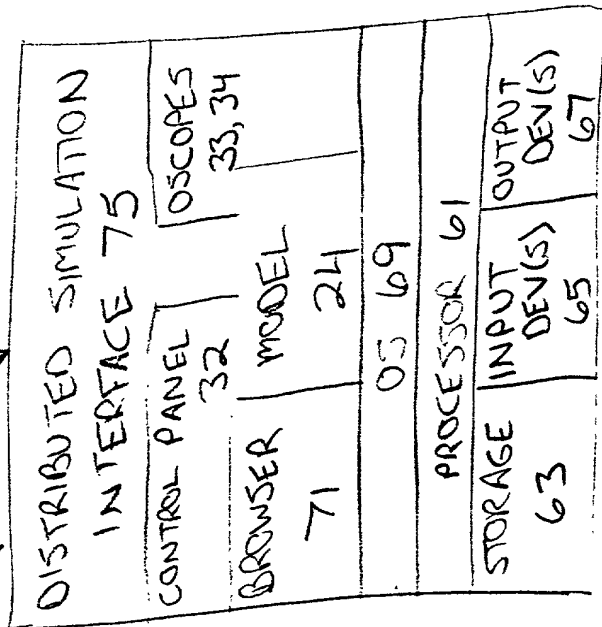 DISTRIBUTED SIMULATION
INTERFACE 75
CONTROL PANEL
32
OSCOPES
33, 34
BROWSER
71
MODEL
24
OS 69
PROCESSOR 61
STORAGE
63
INPUT
DEV(S)
65
OUTPUT
DEV(S)
67